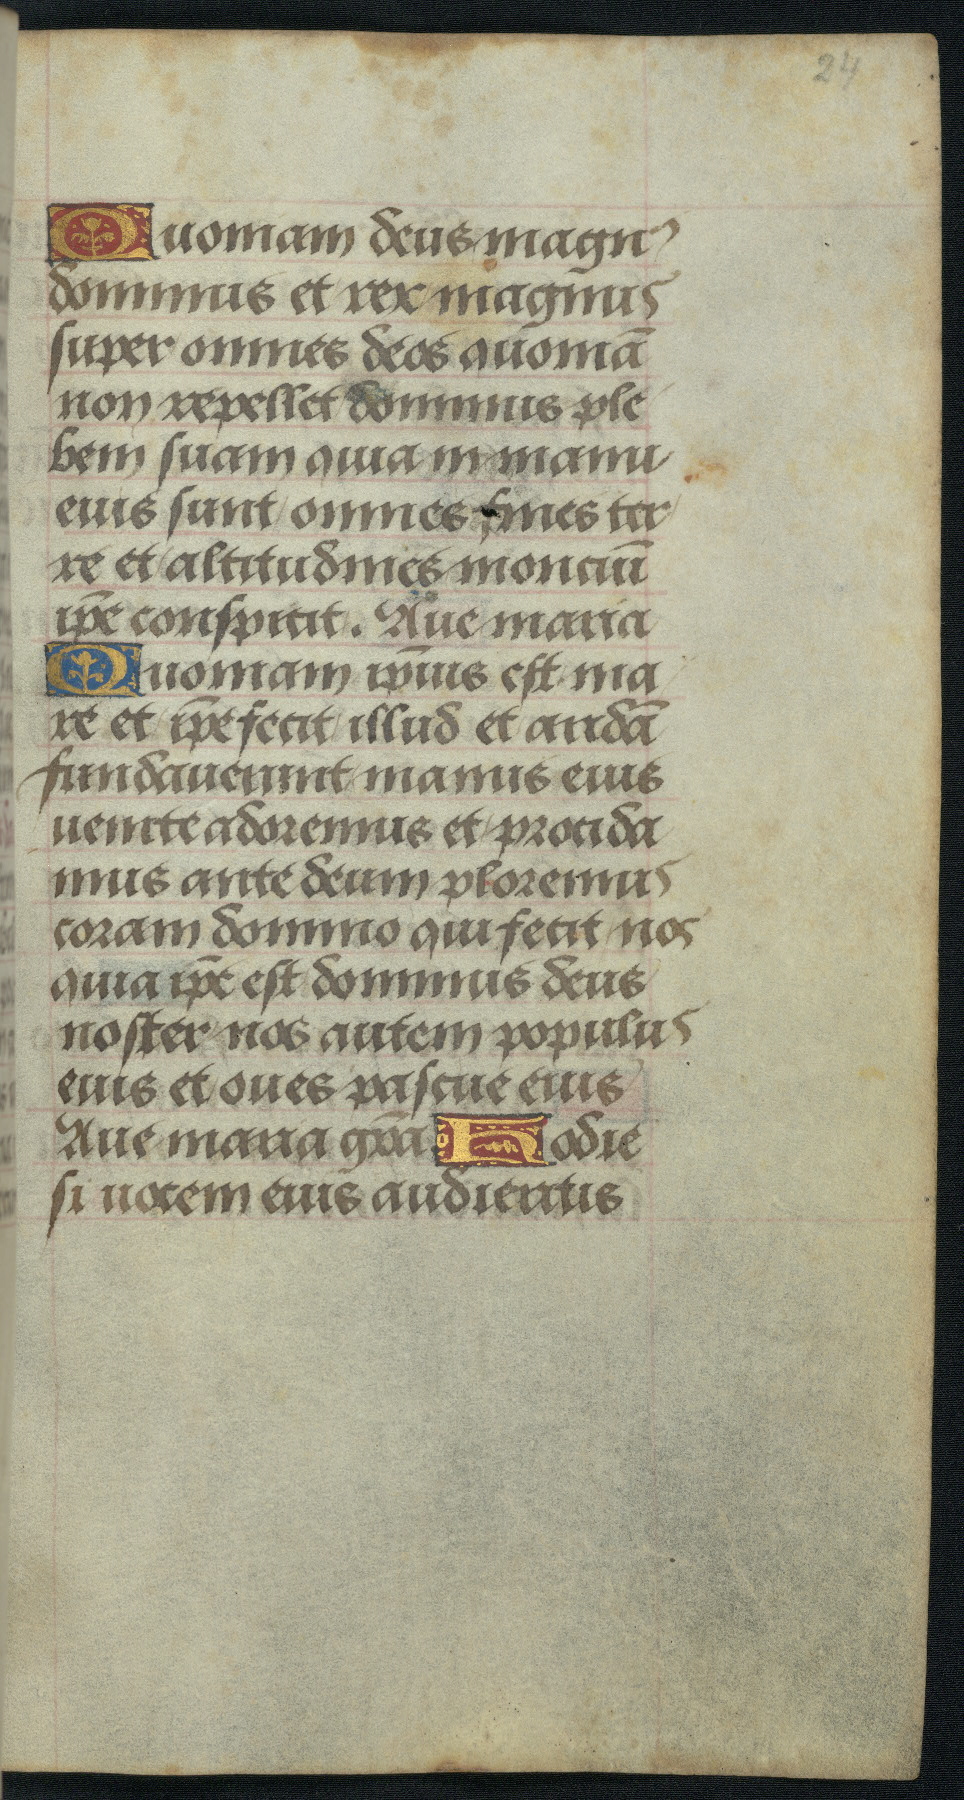 24
Quoniam deus magnꝰ
dominus et rex magnus
super omnes deos quoniā
non repellet dominus ple
bem suam quia in manu
eius sunt omnes fines ter
re et altitudines monciū
ip̄e conspicit. Aue maria
Quoniam ip̄ius est ma
re et ip̄e fecit illud et aridā
fundauerunt manus eius
uenite adoremus et procida
mus ante deum ploremus
coram domino qui fecit nos
quia ip̄e est dominus deus
noster nos autem populus
eius et oues pascue eius
Aue maria gr̄a. Hodie
si uocem eius audieritis